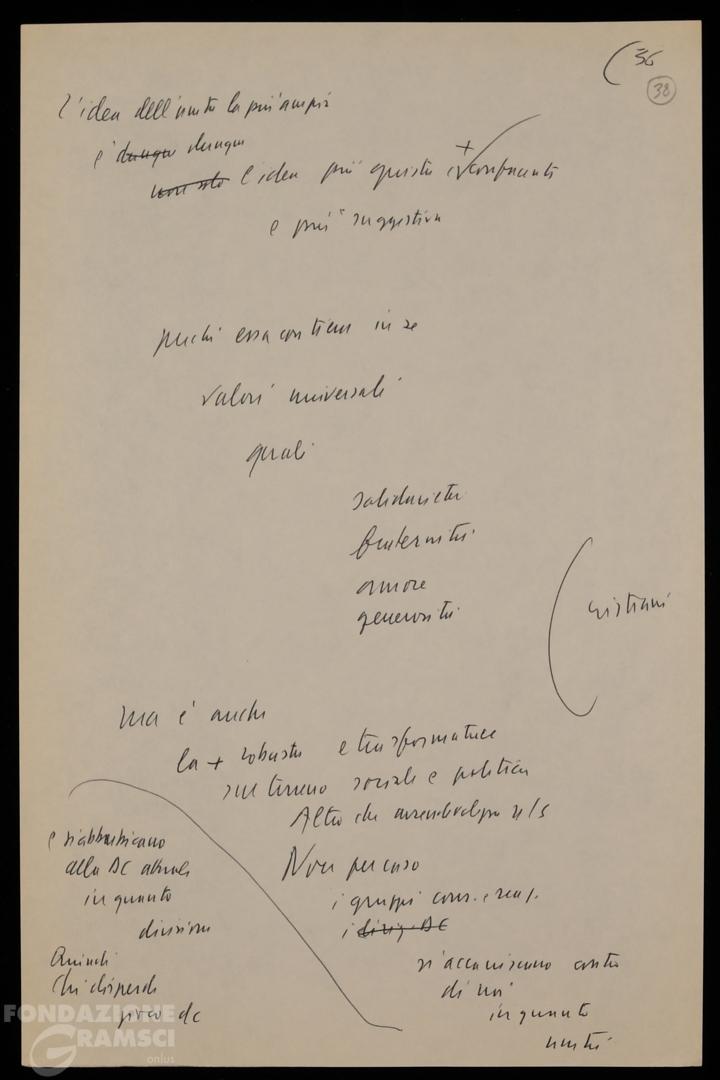 36
38
L'idea dell'unità la più ampia
è dunque dunque
non solo l'idea più giusta + confacente
e più suggestiva
perché essa contiene in sé
valori universali
quali
solidarietà
fraternità
amore
generosità
cristiani
Ma è anche
la + robusta e trasformatrice
sul terreno sociale e politico
Altro che
Non per caso
i gruppi cons. e reaz.
i dirig. DC
si accaniscono contro
di noi
in quanto
unità
e si abbarbicano
alla DC attuale
in quanto
divisione
Quindi
Chi disperde
DC
FONDAZIONE
GRAMSCI
onlus